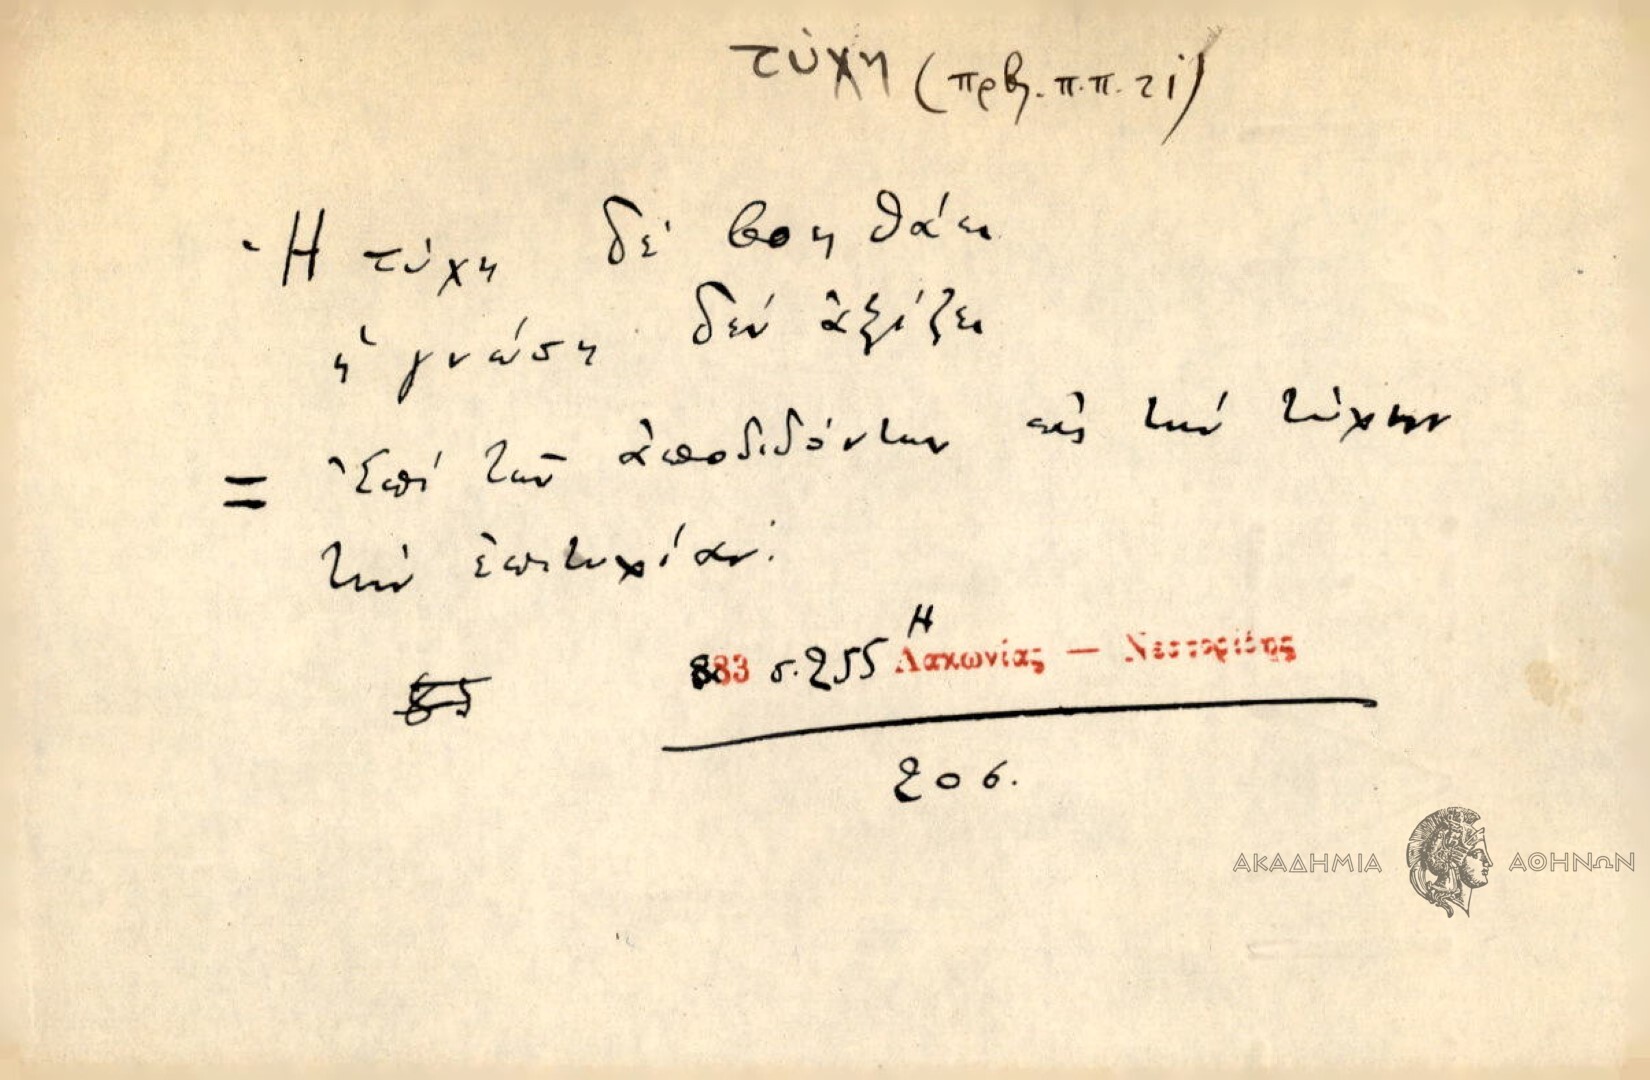 τύχη (πρβ. π.π. τί)
Ἡ τύχη δέ βοηθάει
ἡ γνώση δέν ἀξίζει
= Ἐπί τῶν ἀποδιδόντων εἰς τήν τύχην
τήν ἐπιτυχίαν.
Η
883 σ. 255 Λακωνίας — Νεστορίδης
206.
ΑΚΑΔΗΜΙΑ ΑΘΗΝΩΝ